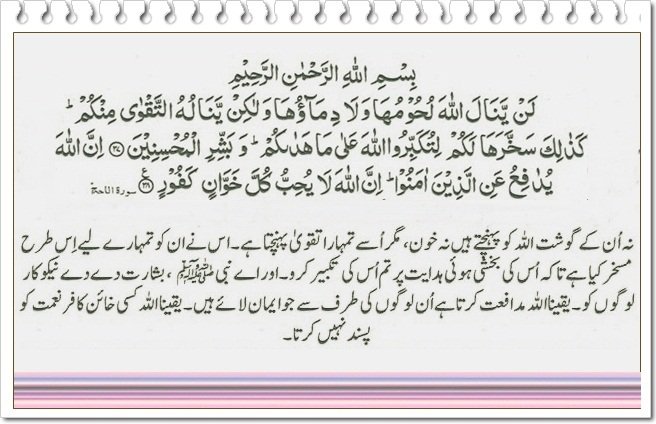 بِسْمِ اللهِ الرَّحْمٰنِ الرَّحِيْمِ
لَنْ يَّنَالَ اللهَ لُحُوْمُهَا وَلَا دِمَآؤُهَا وَلٰكِنْ يَّنَالُهُ التَّقْوٰى مِنْكُمْ ؕ
كَذٰلِكَ سَخَّرَهَا لَكُمْ لِتُكَبِّرُوا اللهَ عَلٰى مَا هَدٰىكُمْ ؕ وَ بَشِّرِ الْمُحْسِنِيْنَ ﴿۳۷﴾ اِنَّ اللهَ
يُدٰفِعُ عَنِ الَّذِيْنَ اٰمَنُوْا ؕ اِنَّ اللهَ لَا يُحِبُّ كُلَّ خَوَّانٍ كَفُوْرٍ ﴿۳۸﴾ ع سورة الحج
نہ اُن کے گوشت اللہ کو پہنچتے ہیں نہ خون، مگر اُسے تمہارا تقویٰ پہنچتا ہے۔ اس نے ان کو تمہارے لیے اِس طرح
مسخر کیا ہے تاکہ اُس کی بخشی ہوئی ہدایت پر تم اُس کی تکبیر کرو۔ اور اے نبی ﷺ، بشارت دے دے نیکو کار
لوگوں کو۔ یقیناً اللہ مدافعت کرتا ہے اُن لوگوں کی طرف سے جو ایمان لائے ہیں۔ یقیناً اللہ کسی خائن کافر نعمت کو
پسند نہیں کرتا۔